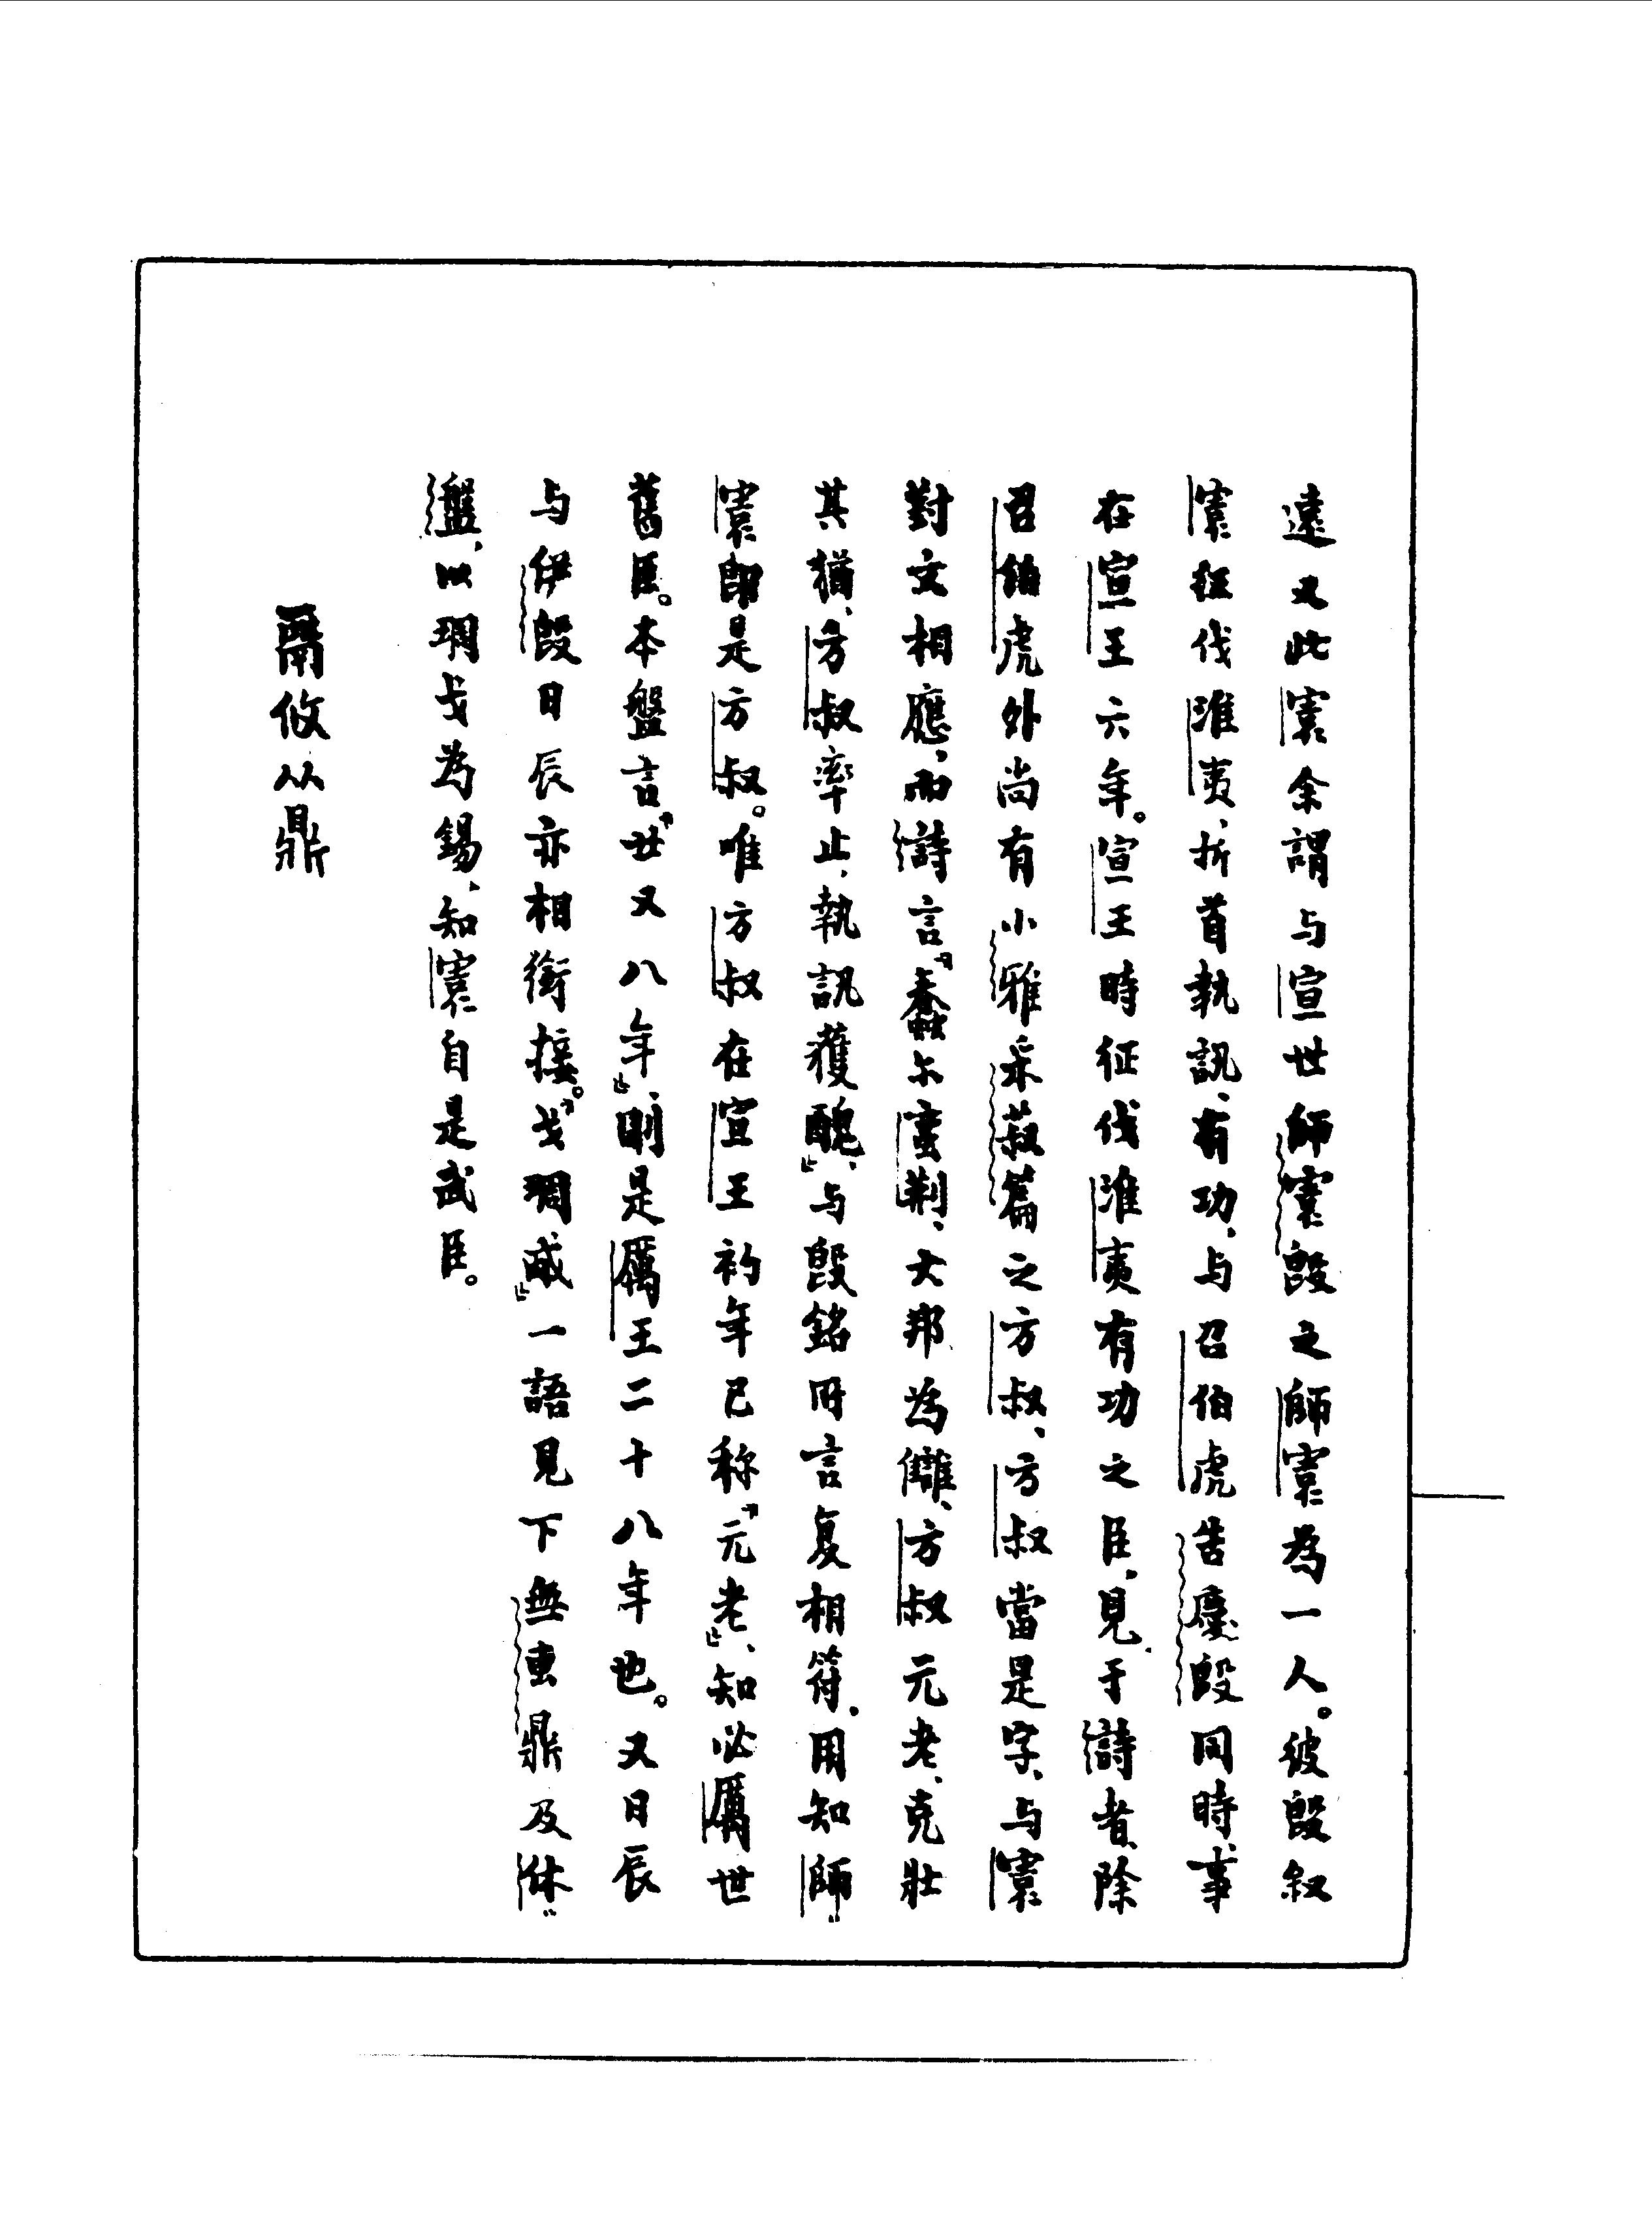 遠。又此寰余謂与宣世師寰𣪘之師寰為一人。彼𣪘叙
寰征伐淮夷、折首執訊、有功、与召伯虎告慶𣪘同時、事
在宣王六年。宣王時征伐淮夷有功之臣、見于詩者、除
召伯虎外尚有小雅采菽篇之方叔、方叔當是字、与寰
對文相應、而詩言『蠢尔蛮荆、大邦為讎、方叔元老、克壯
其猶、方叔率止、執訊獲醜』、与𣪘銘所言复相符。用知師
寰即是方叔。唯方叔在宣王初年已称『元老』、知必厲世
舊臣。本盤言『廿又八年』、則是厲王二十八年也。又日辰
与伊𣪘日辰亦相銜接。『戈琱㦰』一語見下無叀鼎及休
盤、以琱戈為錫、知寰自是武臣。
鬲攸从鼎